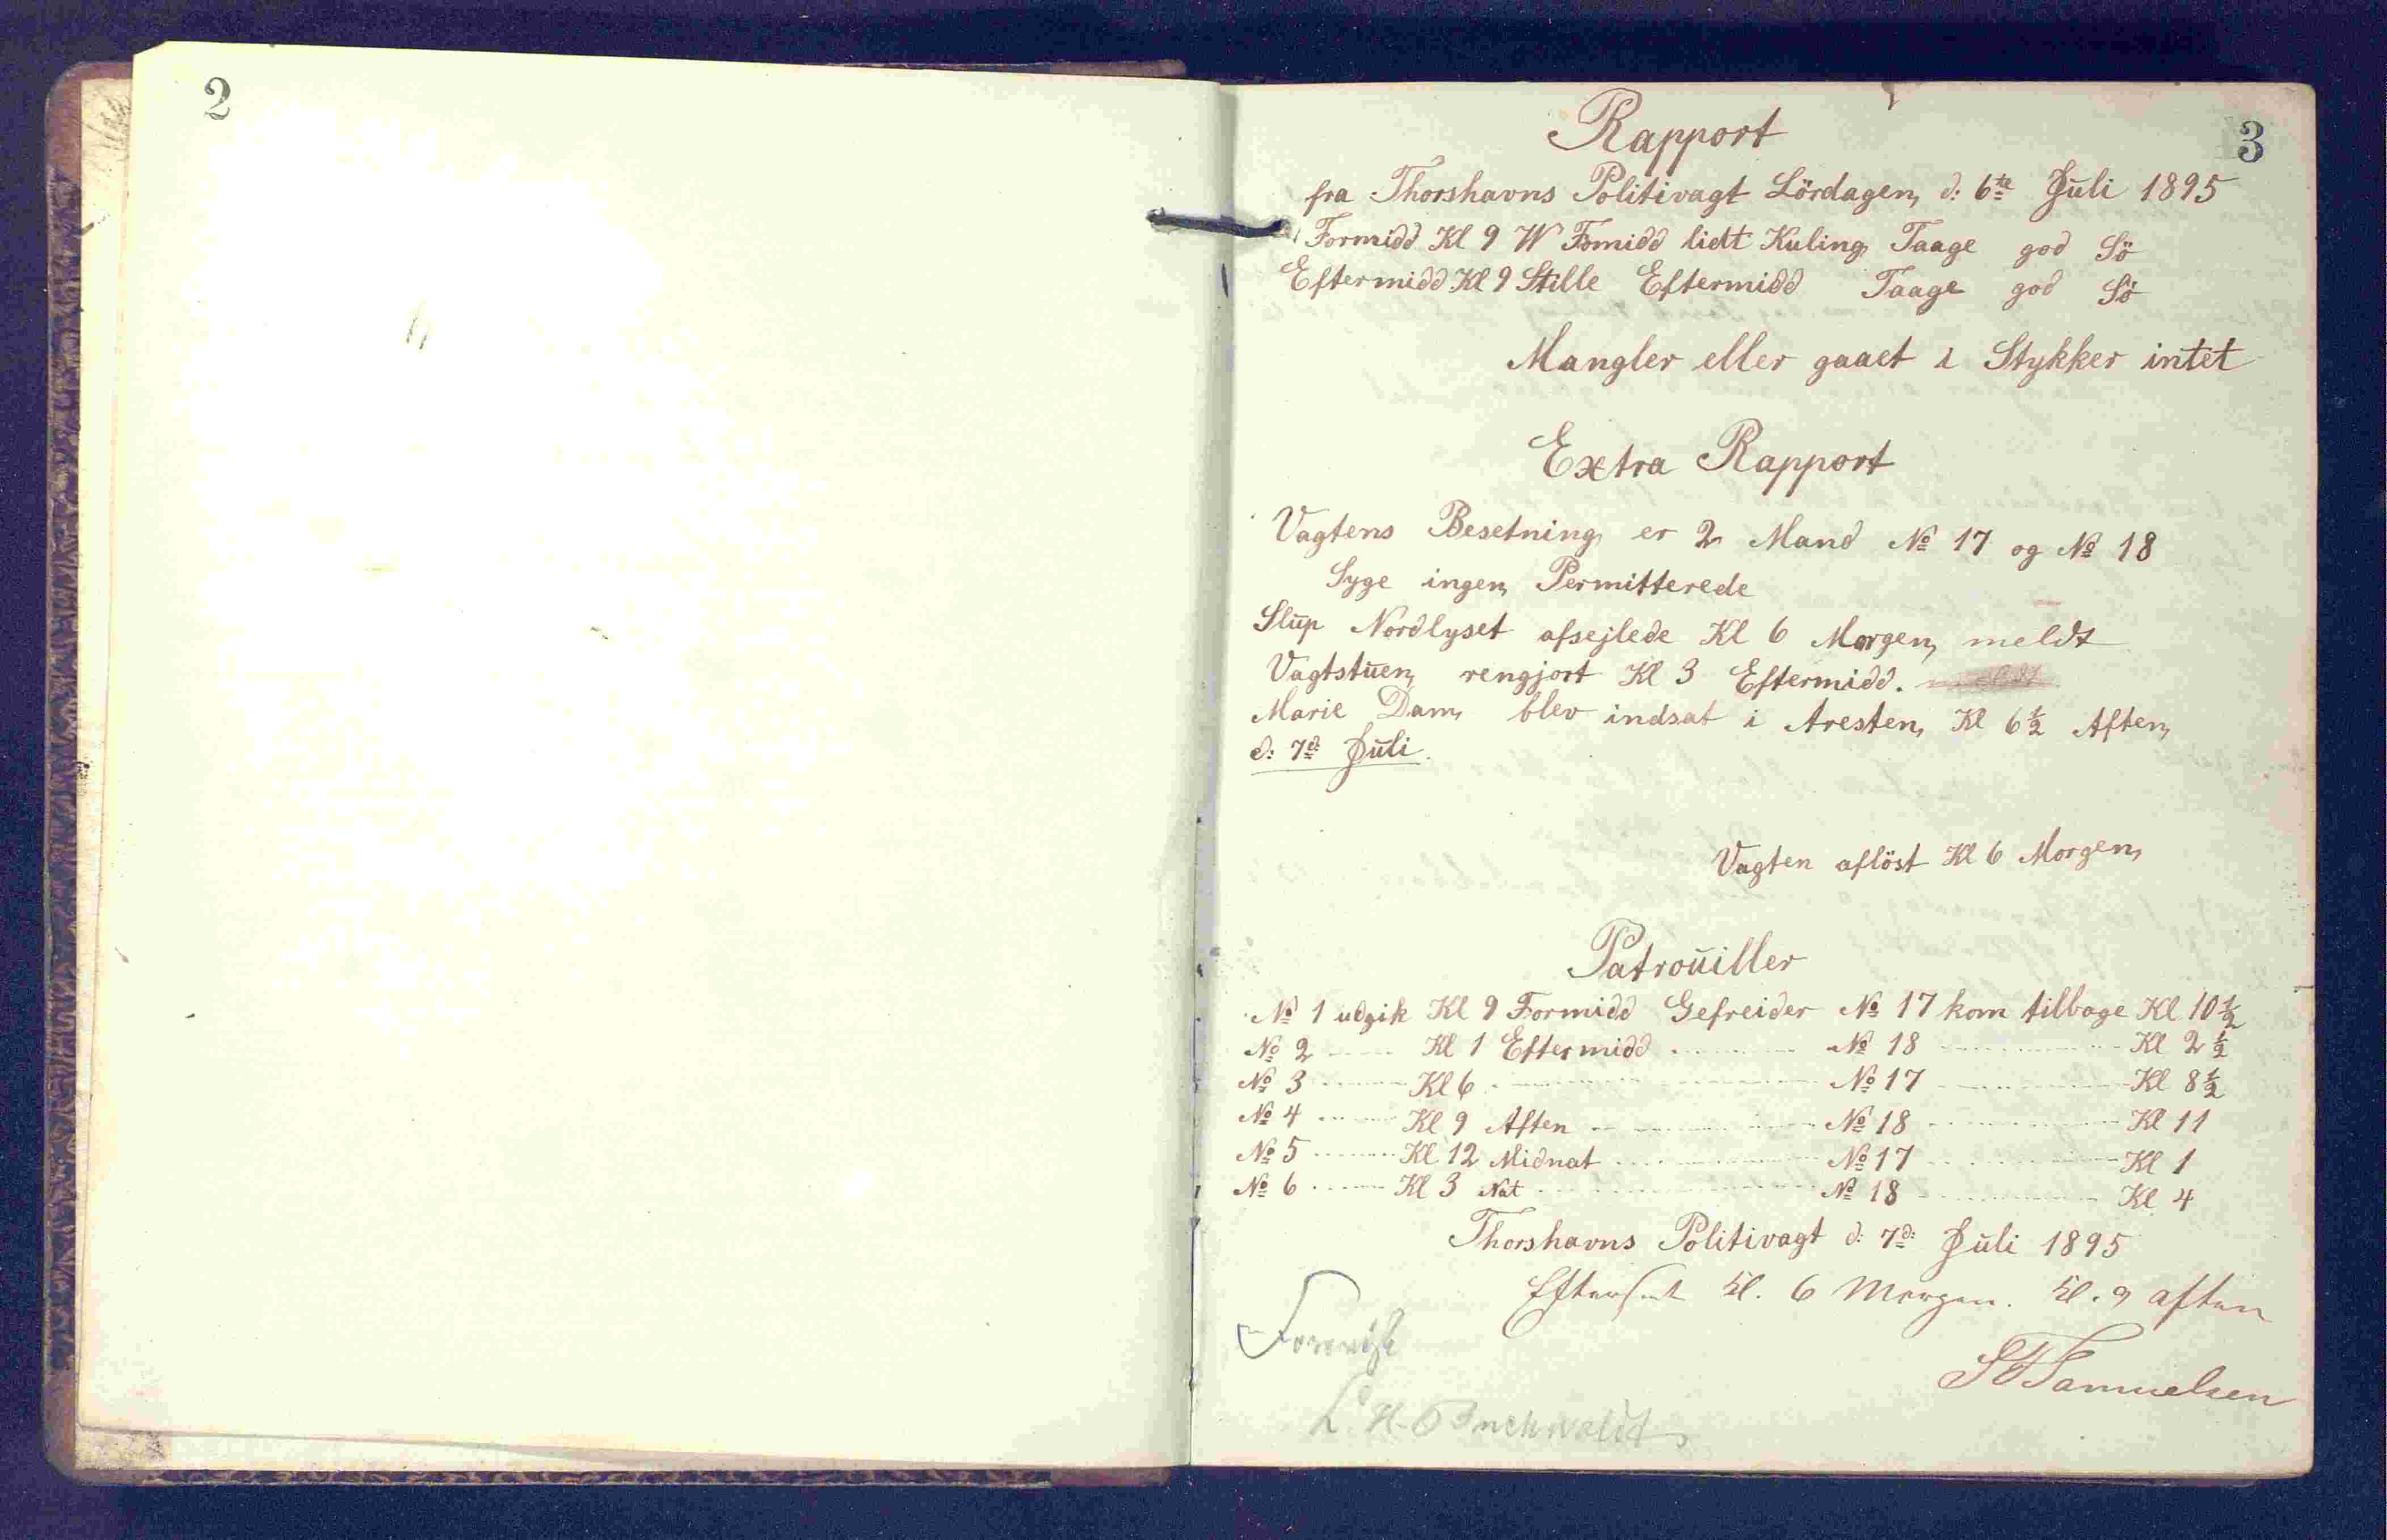 2
3
Rapport
fra Thorshavns Politivagt Lördagen d: 6te Juli 1895
Formidd Kl 9 W Fomidd lidt Kuling Taage god Sö
Eftermidd Kl 9 Stille Eftermidd Taage god Sö
Mangler eller gaaet i Stykker intet
Extra Rapport
Vagtens Besetning er 2 Mand No 17 og No 18
Syge ingen Permitterede
Slup Nordlyset afsejlede Kl 6 Morgen meldt
Vagtstuen rengjort Kl 3 Eftermidd.
Marie Dam blev indsat i Aresten Kl 6½ Aften
d: 7d Juli.
Vagten aflöst Kl 6 Morgen
Patrouiller
No 1 udgik Kl 9 Formidd Gefreider No 17 kom tilbage Kl 10½
No 2 Kl 1 Eftermidd No 18 Kl 2½
No 3 Kl 6 No 17 Kl 8½
No 4 Kl 9 Aften No 18 Kl 11
No 5 Kl 12 Midnat No 17 Kl 1
No 6 Kl 3 Nat No 18 Kl 4
Thorshavns Politivagt d: 7d: Juli 1895
Efterset Kl. 6 Morgen. Kl. 9 aften
Samuelsen
L. H. Buchwaldt